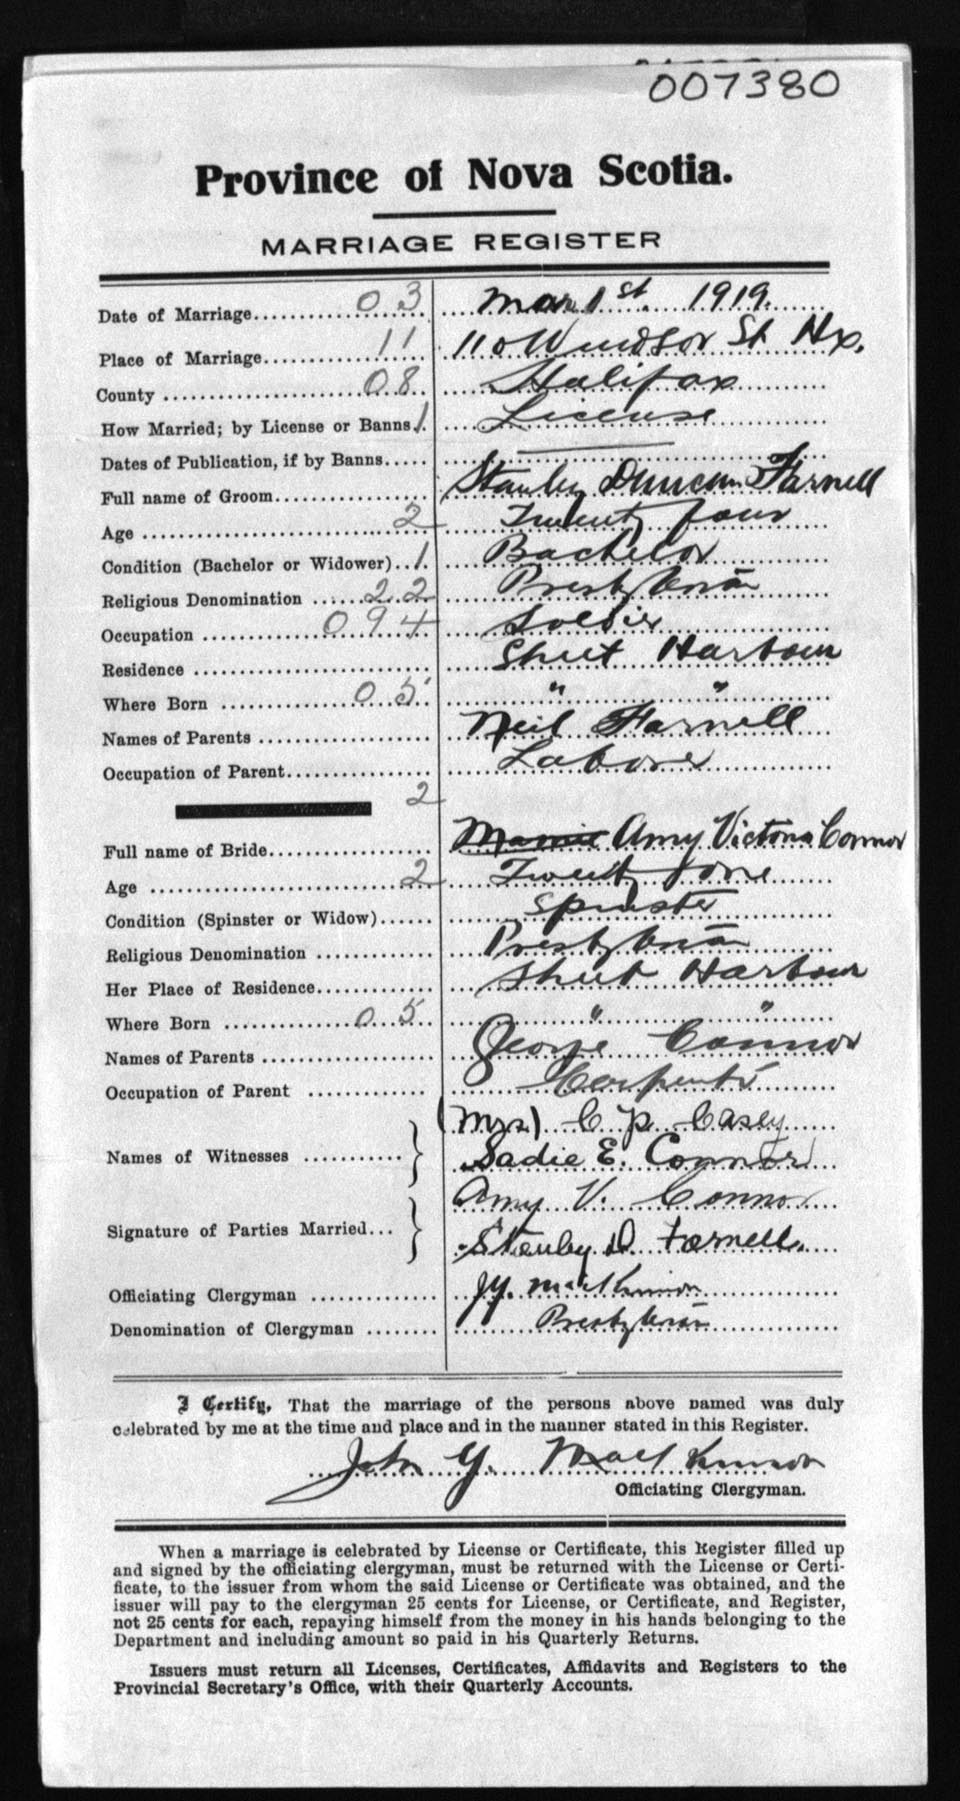 007380
Province of Nova Scotia.
MARRIAGE REGISTER
Date of Marriage 03 Mar 1st. 1919.
Place of Marriage 11 110 Windsor St Hx.
County 08 Halifax
How Married; by License or Banns 1 License
Dates of Publication, if by Banns
Full name of Groom Stanley Duncan Farnell
Age 2 Twenty four
Condition (Bachelor or Widower) 1 Bachelor
Religious Denomination 22 Presbyterian
Occupation 094 Soldier
Residence Sheet Harbour
Where Born 05 " "
Names of Parents Neil Farnell
Occupation of Parent Laborer
2
Full name of Bride Mamie Amy Victoria Connor
Age 2 Twenty one
Condition (Spinster or Widow) Spinster
Religious Denomination Presbyterian
Her Place of Residence Sheet Harbour
Where Born 05 " "
Names of Parents George Connor
Occupation of Parent Carpenter
(Mrs) C. P. Casey
Names of Witnesses } Sadie E. Connor
Amy V. Connor
Signature of Parties Married } Stanley D. Farnell.
Officiating Clergyman J.Y. MacKinnon
Denomination of Clergyman Presbyterian
I Certify, That the marriage of the persons above named was duly
celebrated by me at the time and place and in the manner stated in this Register.
John Y. MacKinnon
Officiating Clergyman.
When a marriage is celebrated by License or Certificate, this Register filled up
and signed by the officiating clergyman, must be returned with the License or Certi-
ficate, to the issuer from whom the said License or Certificate was obtained, and the
issuer will pay to the clergyman 25 cents for License, or Certificate, and Register,
not 25 cents for each, repaying himself from the money in his hands belonging to the
Department and including amount so paid in his Quarterly Returns.
Issuers must return all Licenses, Certificates, Affidavits and Registers to the
Provincial Secretary's Office, with their Quarterly Accounts.